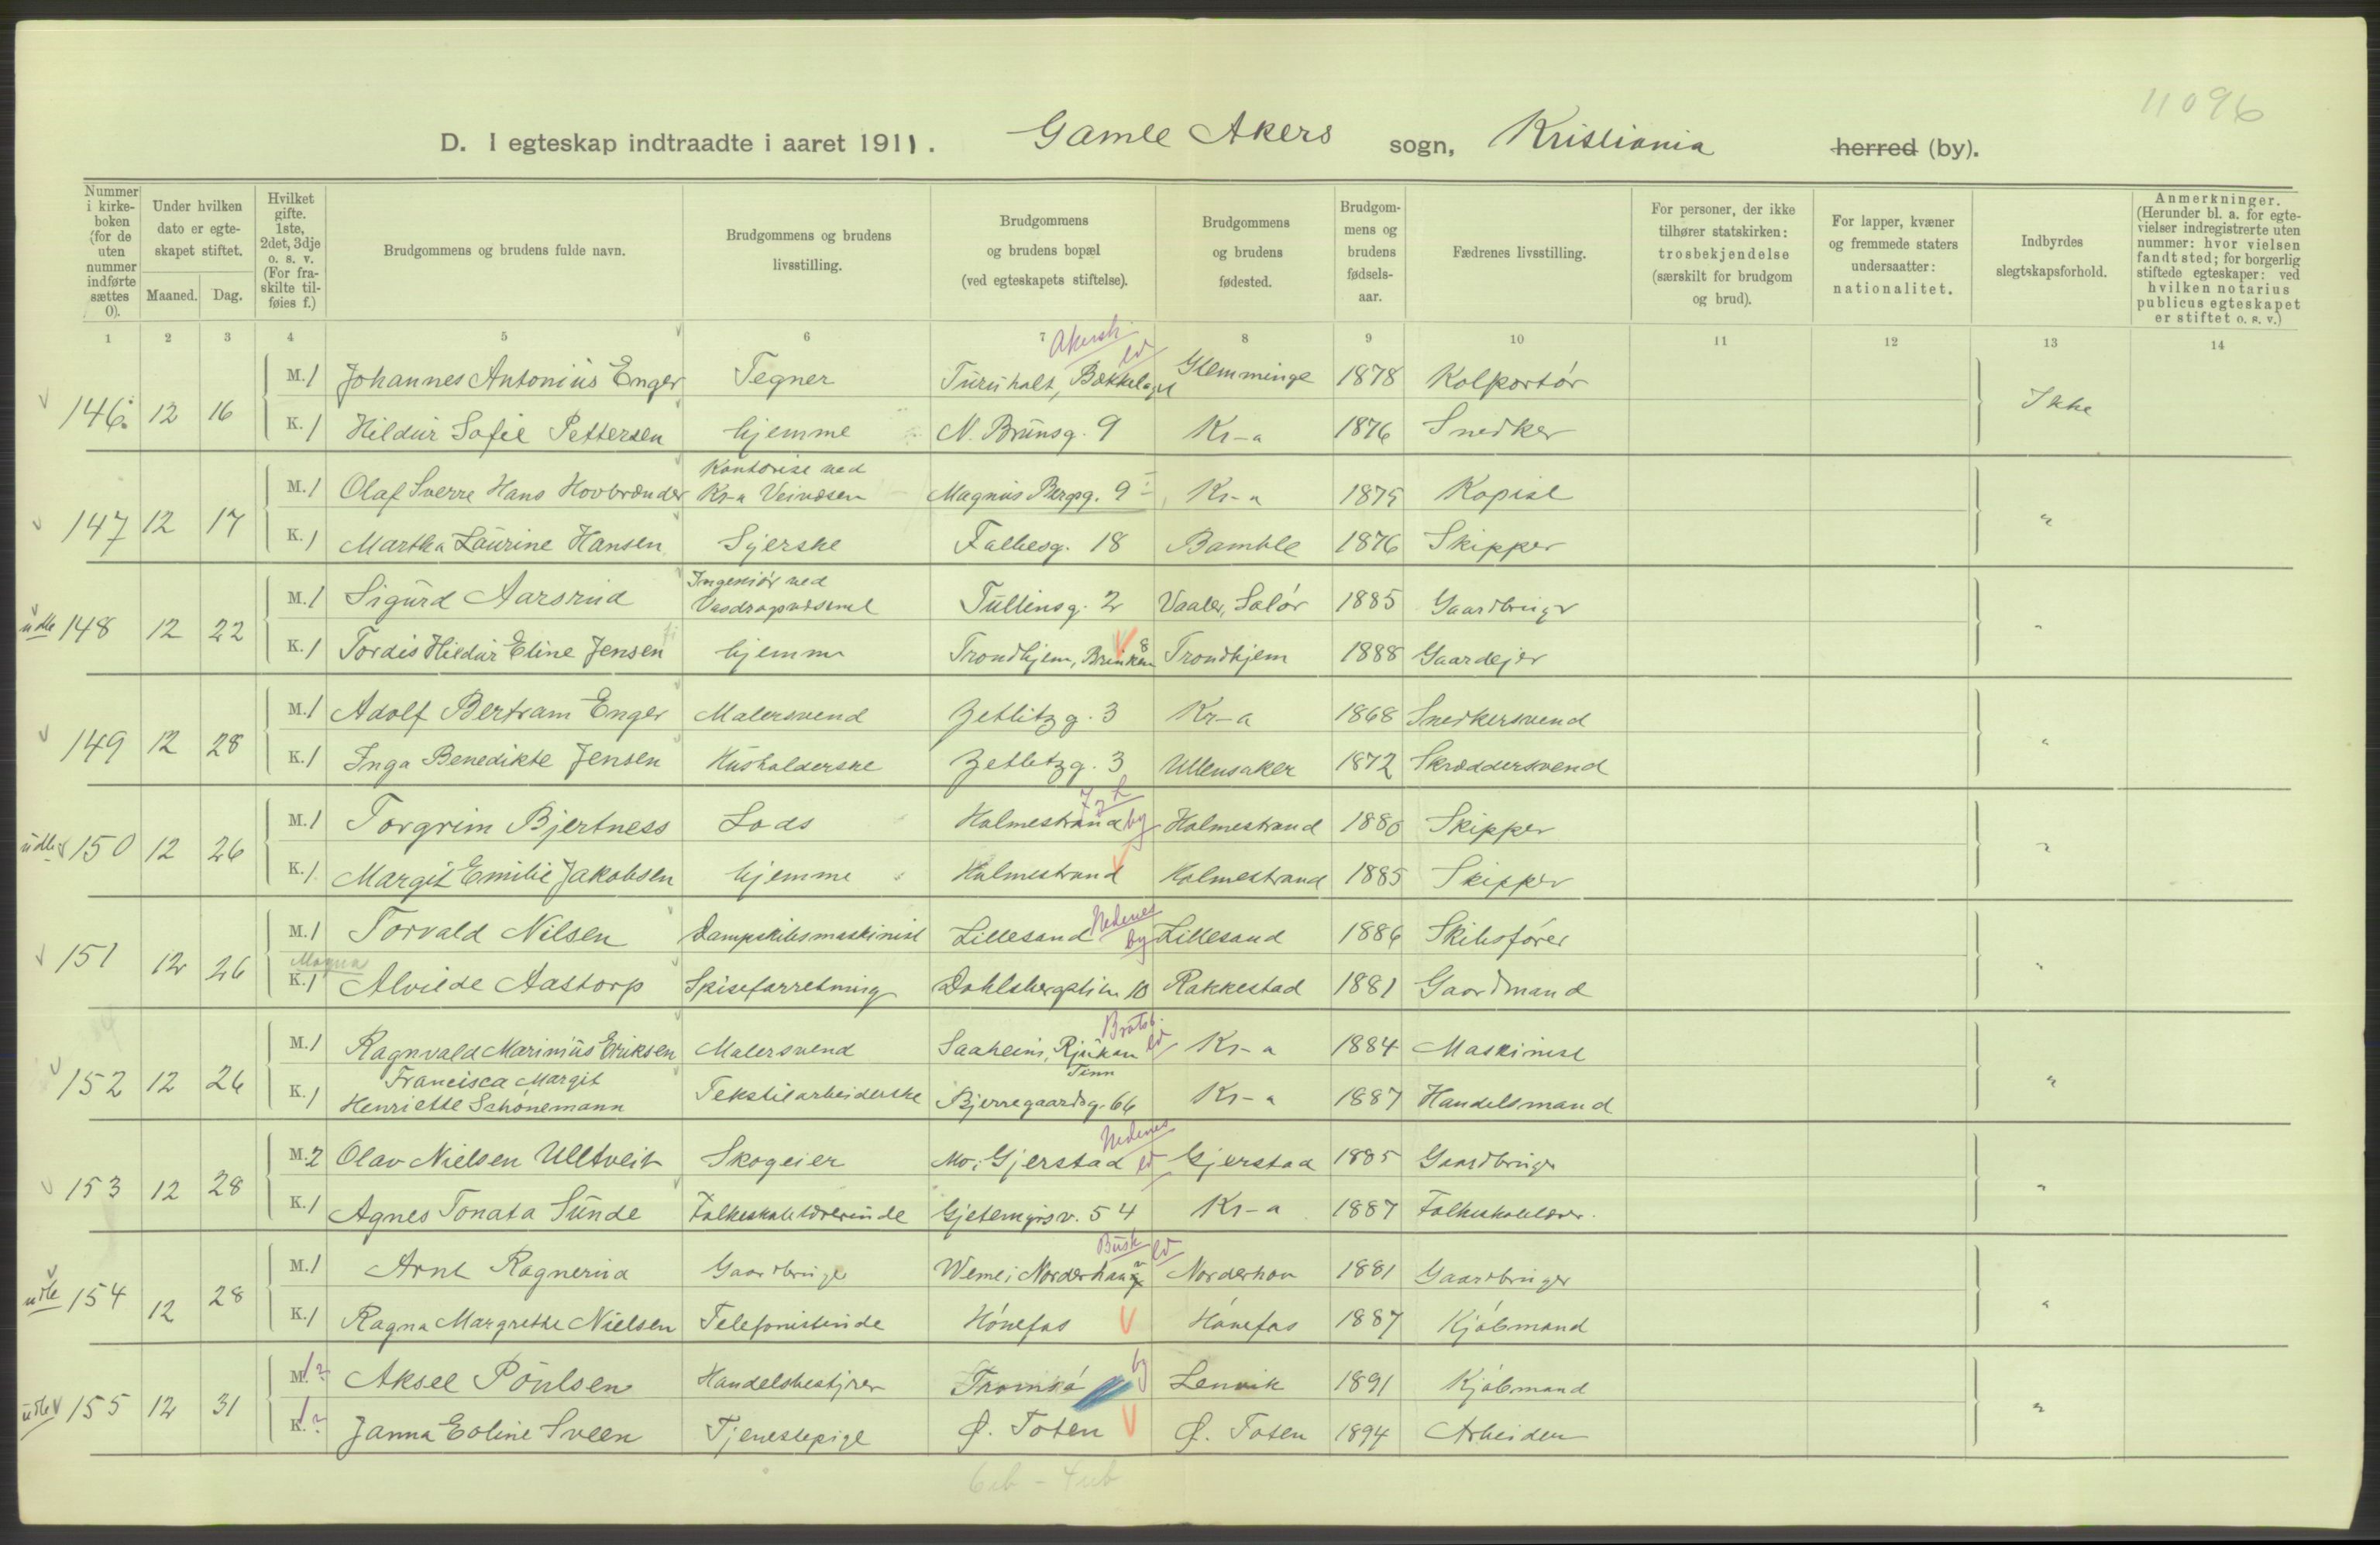 11096
D. I egteskap indtraadte i aaret 1911. Gamle Akers sogn, Kristiania herred (by).
Nummer i kirkeboken (for de uten nummer indførte sættes 0).
Under hvilken dato er egteskapet stiftet.
Maaned. Dag.
Hvilket gifte. 1ste, 2det, 3dje o. s. v. (For fraskilte tilføies f.)
Brudgommens og brudens fulde navn.
Brudgommens og brudens livsstilling.
Brudgommens og brudens bopæl (ved egteskapets stiftelse).
Brudgommens og brudens fødested.
Brudgommens og brudens fødselsaar.
Fædrenes livsstilling.
For personer, der ikke tilhører statskirken: trosbekjendelse (særskilt for brudgom og brud).
For lapper, kvæner og fremmede staters undersaatter: nationalitet.
Indbyrdes slegtskapsforhold.
Anmerkninger. (Herunder bl. a. for egtevielser indregistrerte uten nummer: hvor vielsen fandt sted; for borgerlig stiftede egteskaper: ved hvilken notarius publicus egteskapet er stiftet o. s. v.)
1 2 3 4 5 6 7 8 9 10 11 12 13 14
Akersh. ld
M. 1 Johannes Antonius Enger Tegner Turuhalt, Bækkelaget Glemminge 1878 Kolportør
146. 12 16 Ikke
K. 1 Hildur Sofie Pettersen hjemme N. Brunsg. 9 Kr-a 1876 Snedker
Kontorist ved
M. 1 Olaf Sverre Hans Hovbrænder Kr-a Veivæsen Magnus Bergsg. 9 Kr-a 1875 Kopist
147 12 17 "
K. 1 Martha Laurine Hansen Syerske Falbesg. 18 Bamble 1876 Skipper
Ingeniør ved
M. 1 Sigurd Aarsrud Vasdragsvæsenet Tullinsg. 2 Vaaler, Solør 1885 Gaardbruger
udle 148 12 22 "
K. 1 Tordis Hildur Eline Jensen hjemme Trondhjem, Brinken 8 Trondhjem 1888 Gaardejer
M. 1 Adolf Bertram Enger Malersvend Zetlitzg. 3 Kr-a 1868 Snedkersvend
149 12 28 "
K. 1 Inga Benedikte Jensen Husholderske Zetlitzg. 3 Ullensaker 1872 Skræddersvend
M. 1 Torgrim Bjertness Lods Holmestrand by Holmestrand 1880 Skipper
udle 150 12 26 "
K. 1 Margit Emilie Jakobsen hjemme Holmestrand Holmestrand 1885 Skipper
Nedenes by
M. 1 Torvald Nilsen Dampskibsmaskinist Lillesand Lillesand 1886 Skibsfører
151 12 26 "
Magna
K. 1 Alvilde Aastorp Spiseforretning Dahlsbergstien 10 Rakkestad 1881 Gaardmand
Bratsb. ld
M. 1 Ragnvald Marinius Eriksen Malersvend Saaheim, Rjukan Tinn Kr-a 1884 Maskinist
152 12 26 "
Francisca Margit
K. 1 Henriette Schönemann Tekstilarbeiderske Bjerregaardsg. 66 Kr-a 1887 Handelsmand
Nedenes ld
M. 2 Olav Nielsen Ulltveit Skogeier Mo i Gjerstad Gjerstad 1885 Gaardbruger
153 12 28 "
K. 1 Agnes Tonata Sunde Folkeskolelærerinde Gjetemyrsv. 54 Kr-a 1887 Folkeskolelærer.
Busk ld
M. 1 Arnt Ragnerud Gaardbruger Weme i Norderhaug Norderhov 1881 Gaardbruger
udle 154 12 28 "
K. 1 Ragna Margrethe Nielsen Telefonistinde Hønefos Hønefos 1887 Kjøbmand
M. 1 ? Aksel Poulsen Handelsbestyrer Tromsø by Lenvik 1891 Kjøbmand
udle 155 12 31 "
K. 1 ? Janna Eoline Sveen Tjenestepige Ø. Toten Ø. Toten 1894 Arbeider